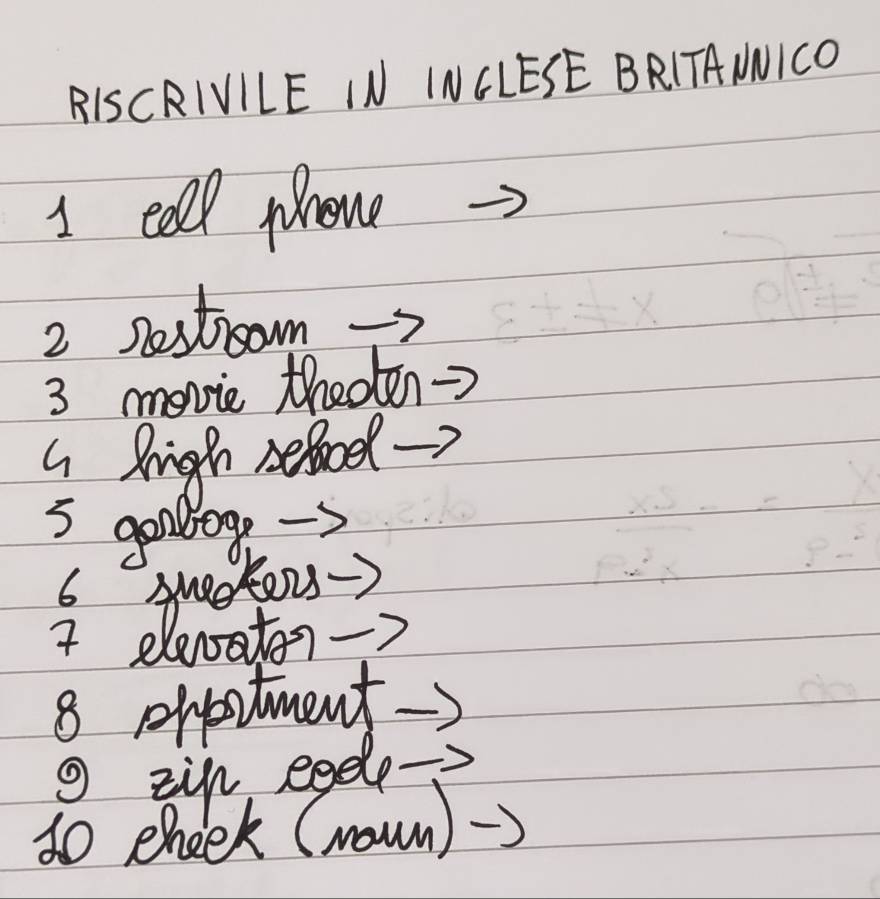 RISCRIVILE IN INGLESE BRITANNICO
1 cell phone →
2 restroom →
3 movie theater →
4 high school →
5 garbage →
6 sneakers →
7 elevator →
8 appartment →
9 zip code →
10 check (noun) →